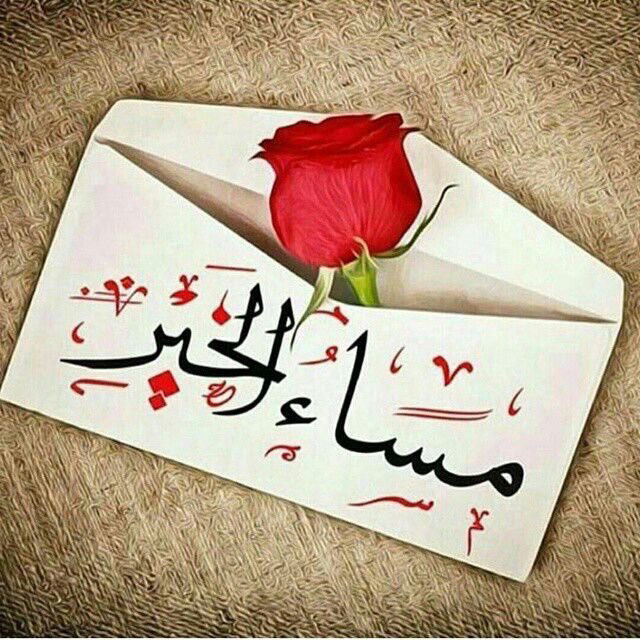 مساء الخير